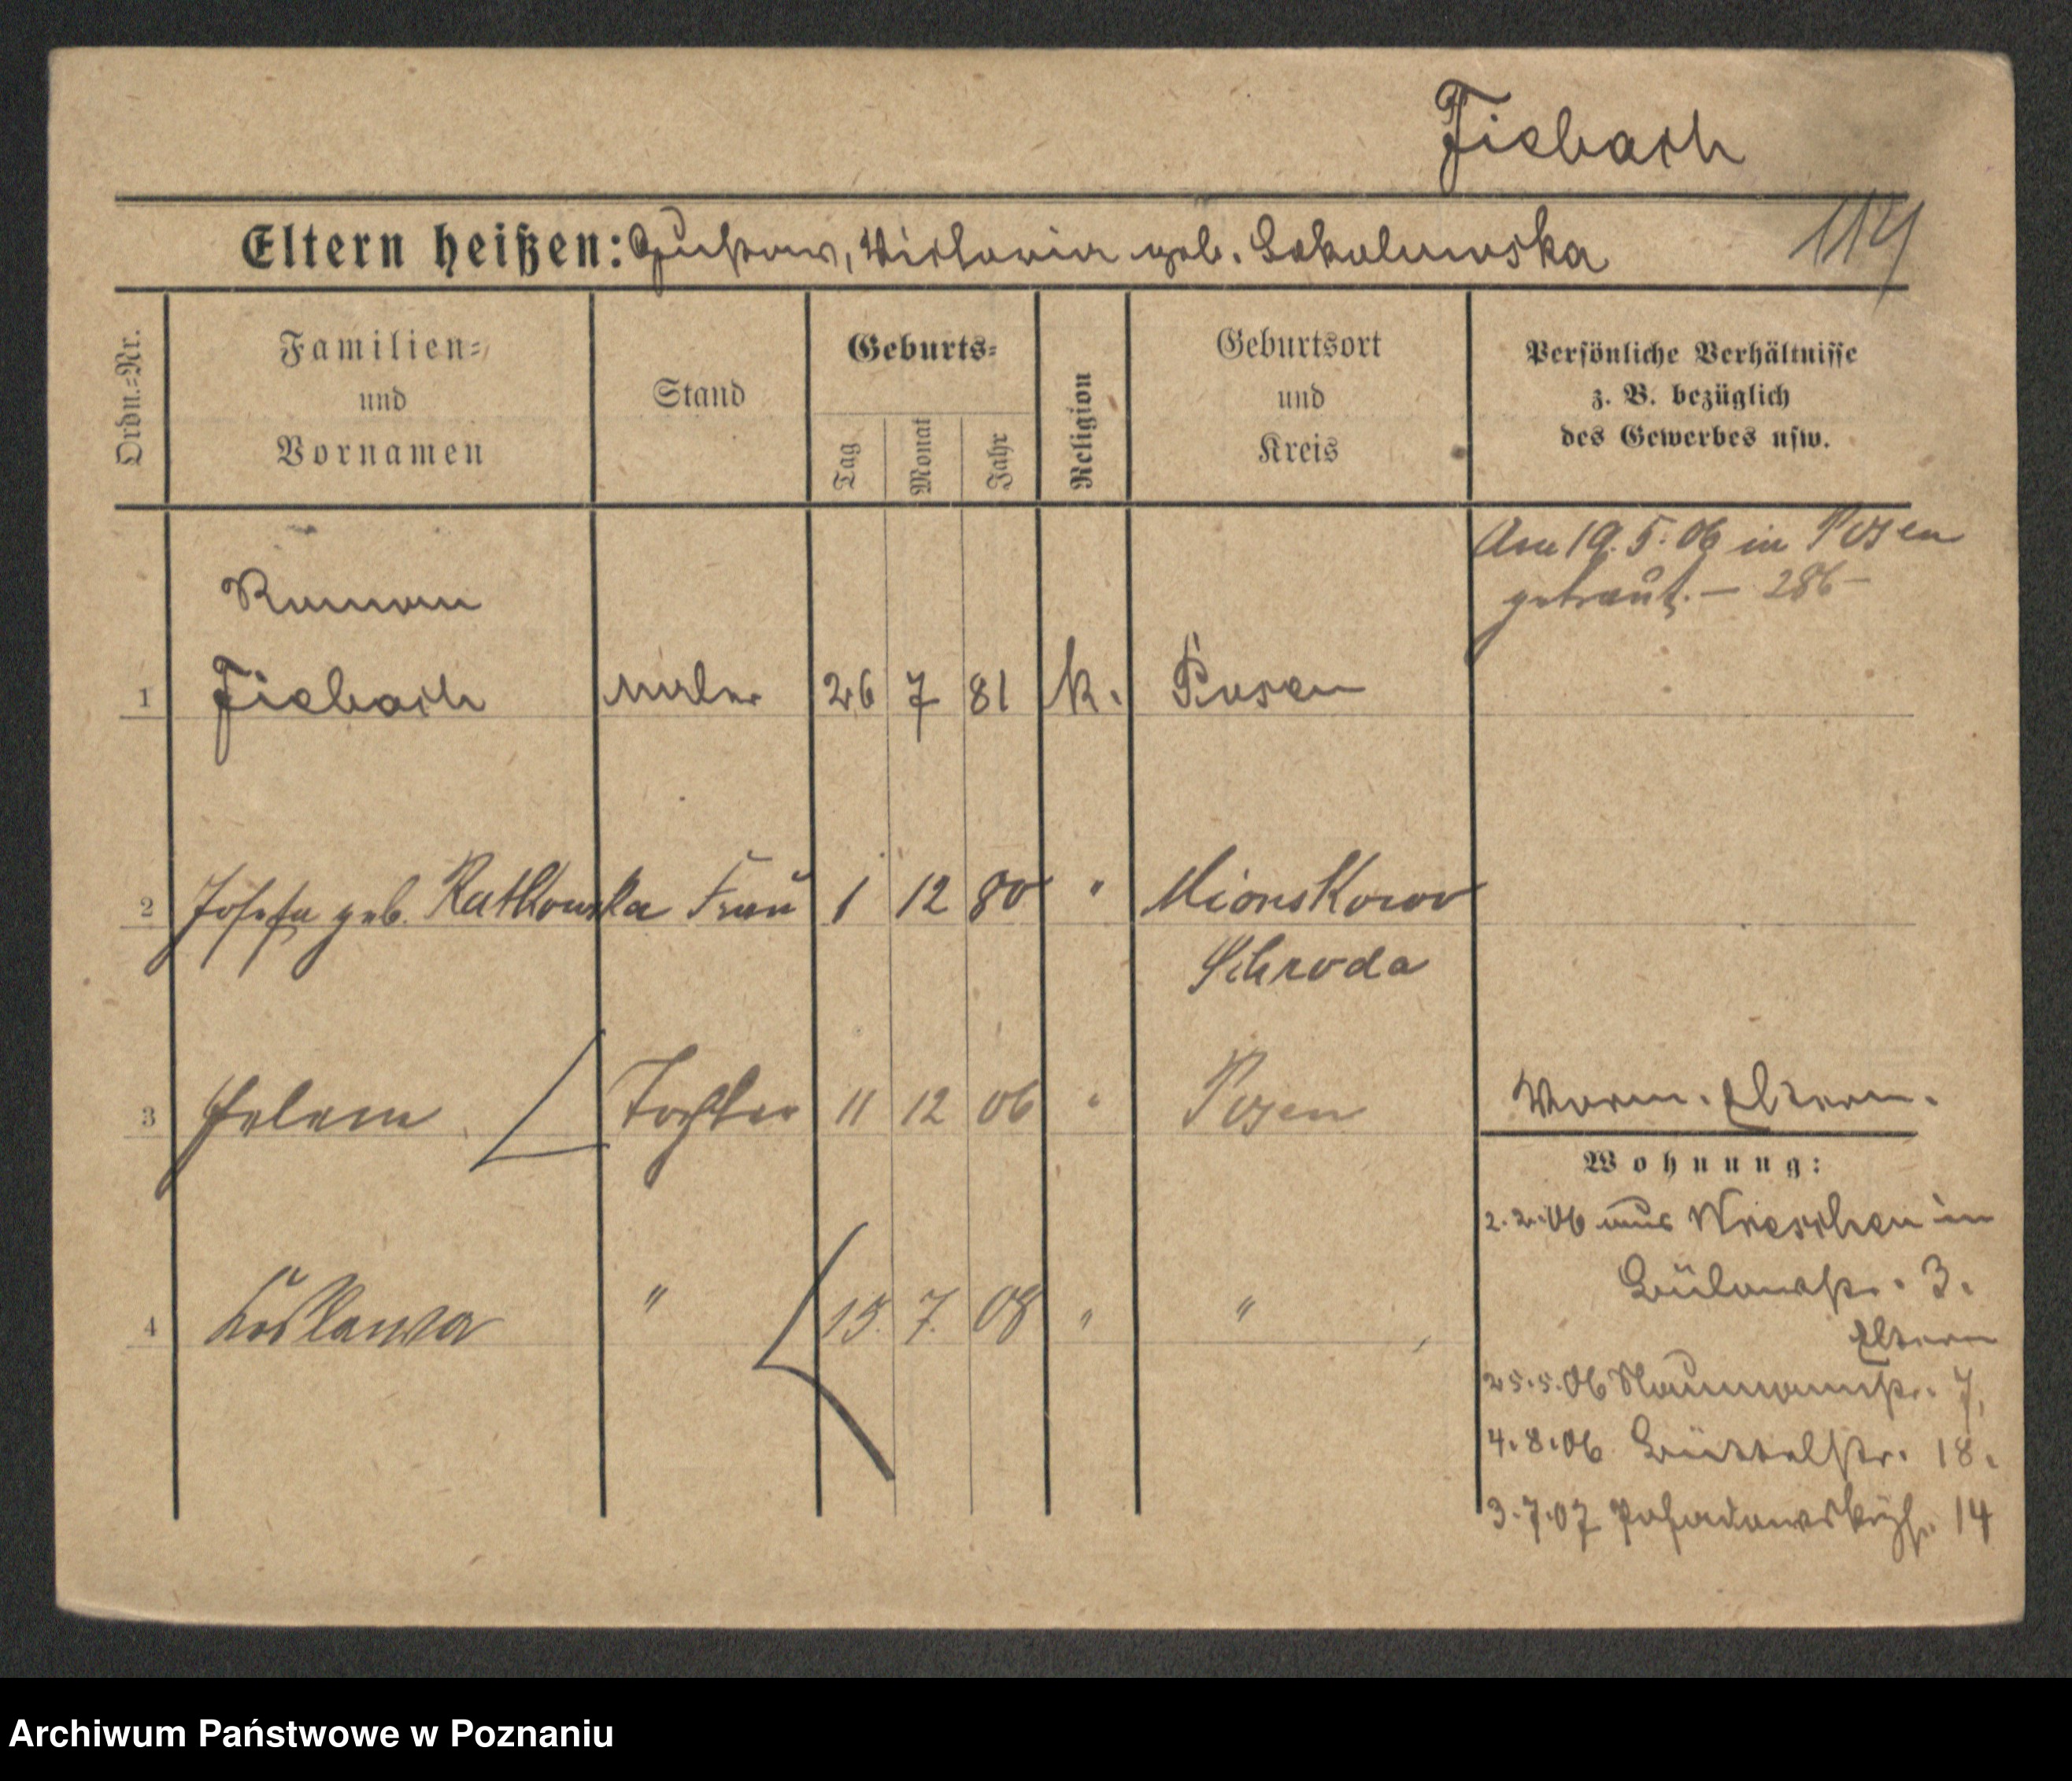 Fiebach
114
Eltern heißen: Gustav, Victoria geb. Sokolowska
Ordn.-Nr.
Familien= und Vornamen
Stand
Geburts=
Tag
Monat
Jahr
Religion
Geburtsort und Kreis
Persönliche Verhältnisse z. B. bezüglich des Gewerbes usw.
Am 19.5.06 in Posen
getraut. – 286 –
Roman
1 Fiebach Maler 26 7 81 k. Posen
2 Josefa geb. Ratkowska Frau 1 12 80 "
Schroda
3 Helene Tochter 11 12 06 " Posen
Vorm. Eltern.
Wohnung:
2.2.06 aus Wreschen in
Bülowstr. 3.
Eltern
4 " 7. 08 " "
25.5.06 Naumannstr. 7,
4.8.06 Büttelstr. 18.
3.7.07 Posadowskystr. 14
Archiwum Państwowe w Poznaniu